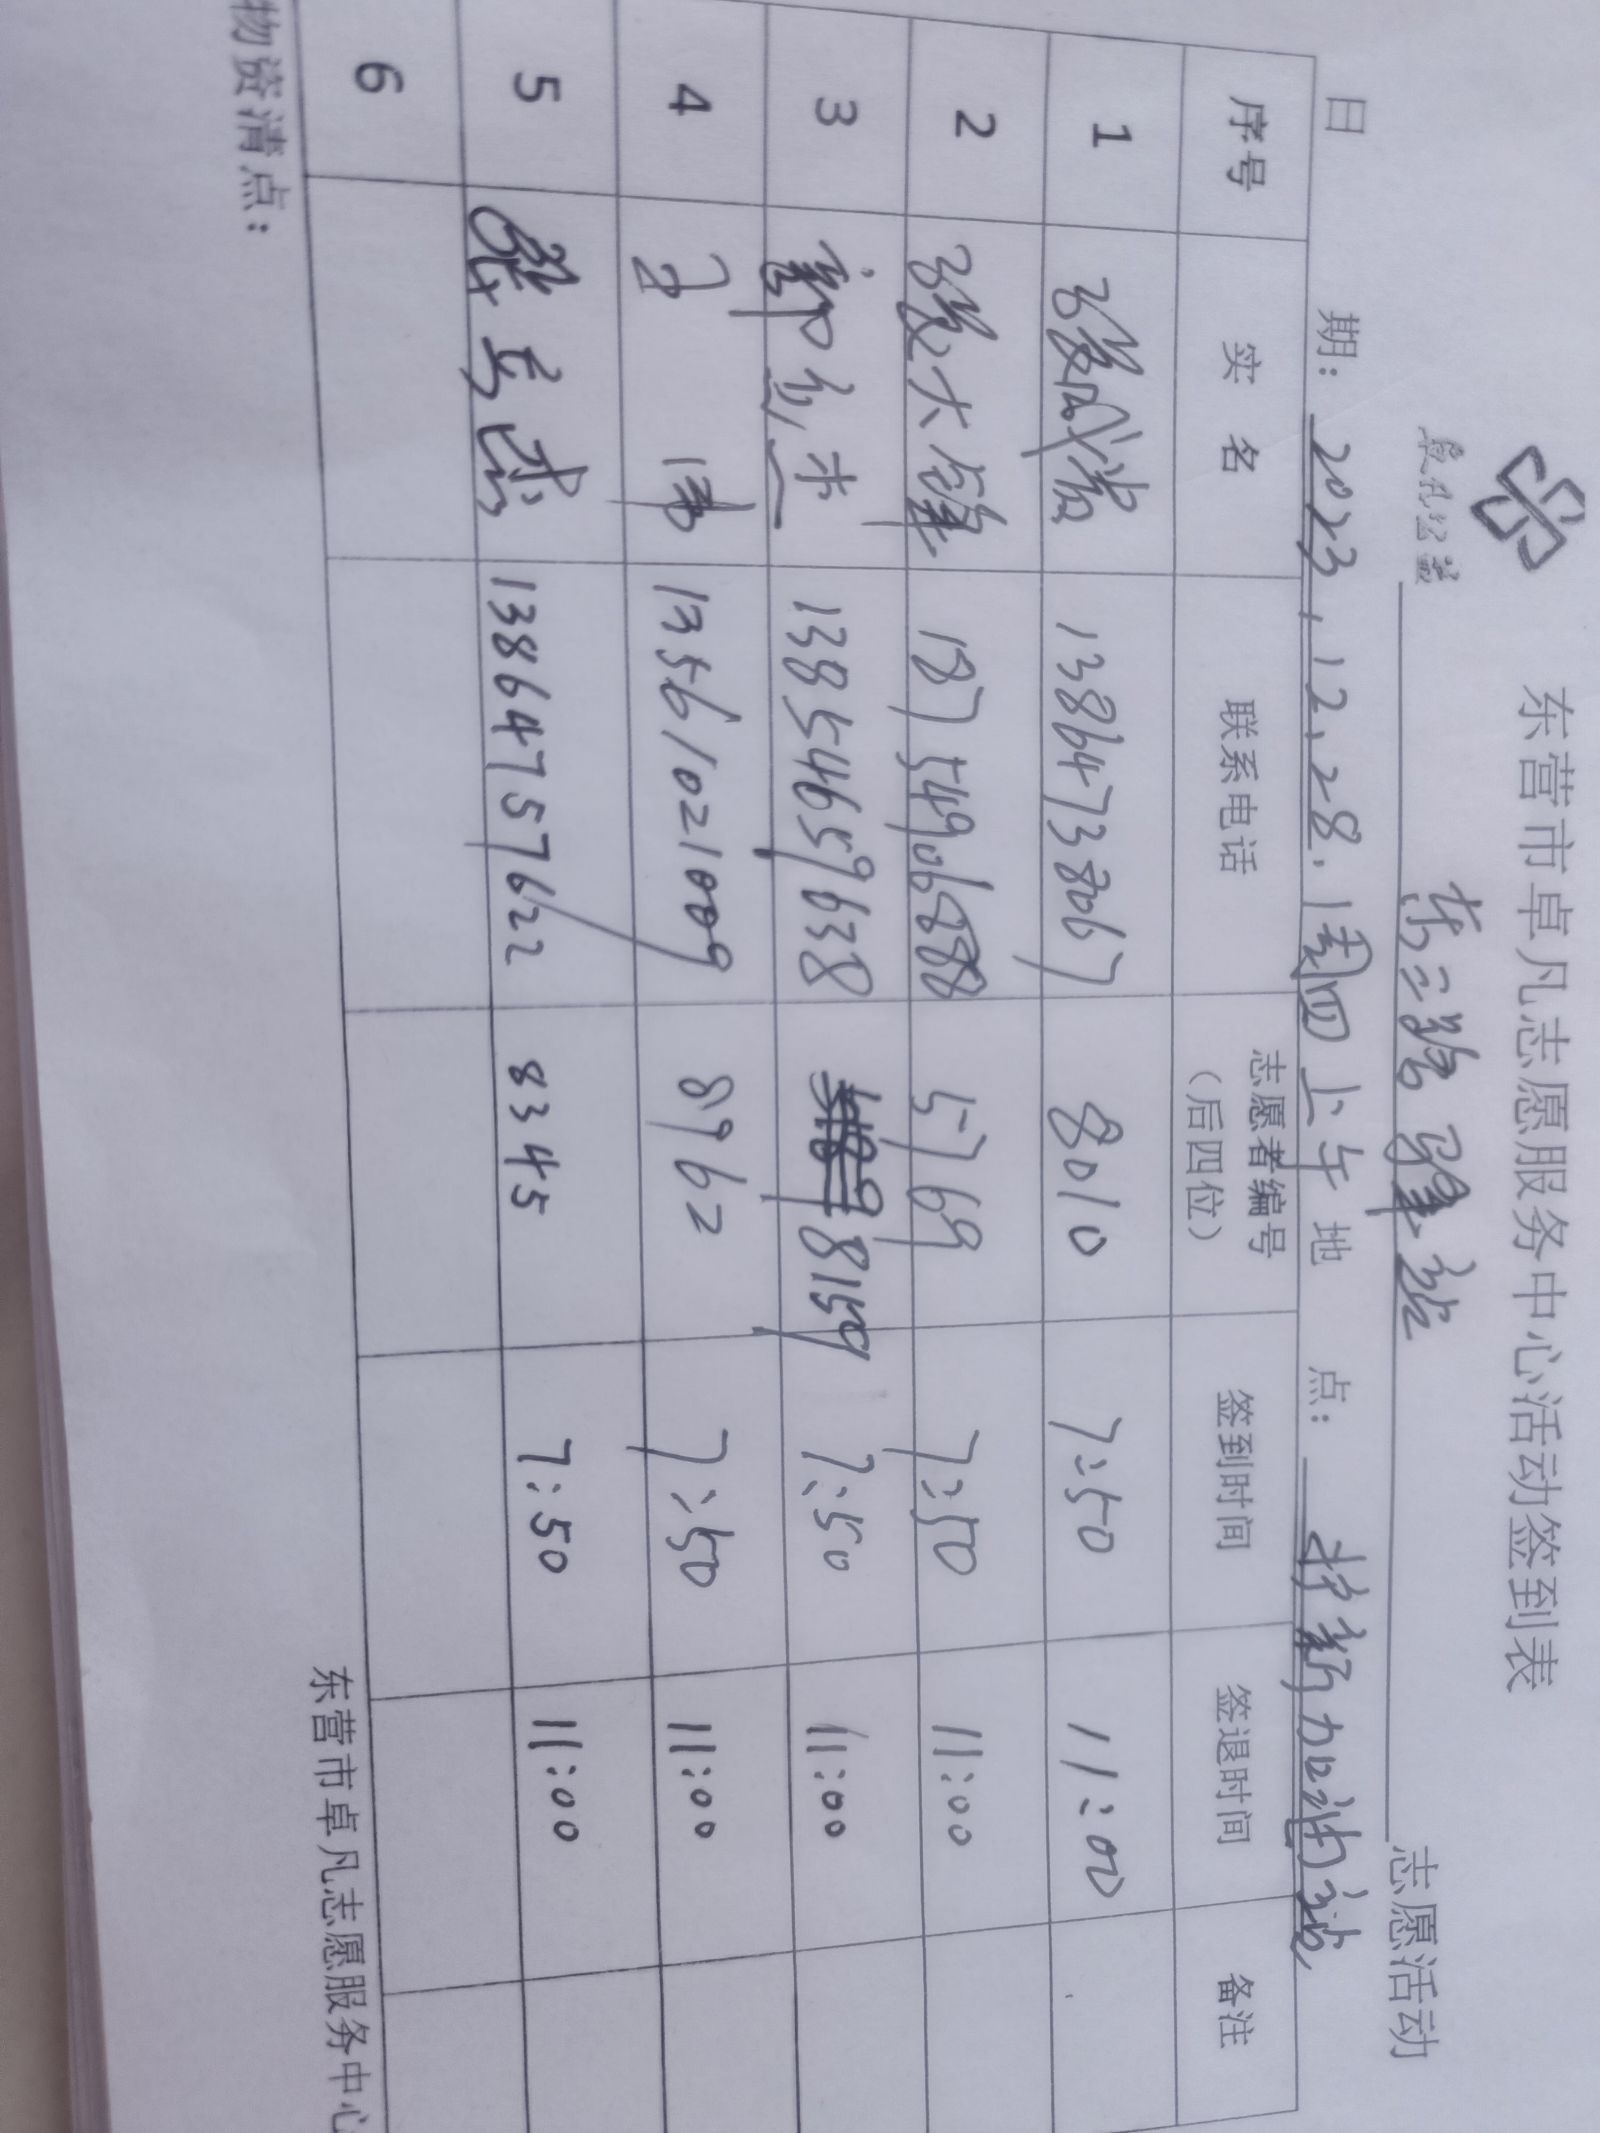 东营市卓凡志愿服务中心活动签到表
卓凡公益
东二路驿站 志愿活动
日 期: 2023.12.28.周四上午 地 点: 择新加油站
序号 实 名 联系电话 志愿者编号（后四位） 签到时间 签退时间 备注
1 张成 13864738067 8010 7:50 11:00
2 张大 18754906888 5769 7:50 11:00
3 13854659638 8159 7:50 11:00
4 王 13561021009 8962 7:50 11:00
5 张 13864757622 8345 7:50 11:00
6
物资清点:
东营市卓凡志愿服务中心